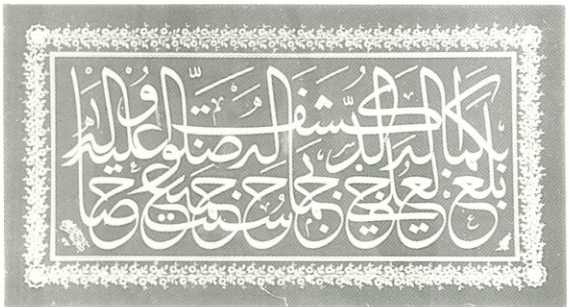 بلغ العلى بكماله كشف الدجى بجماله حسنت جميع خصاله صلوا عليه وآله